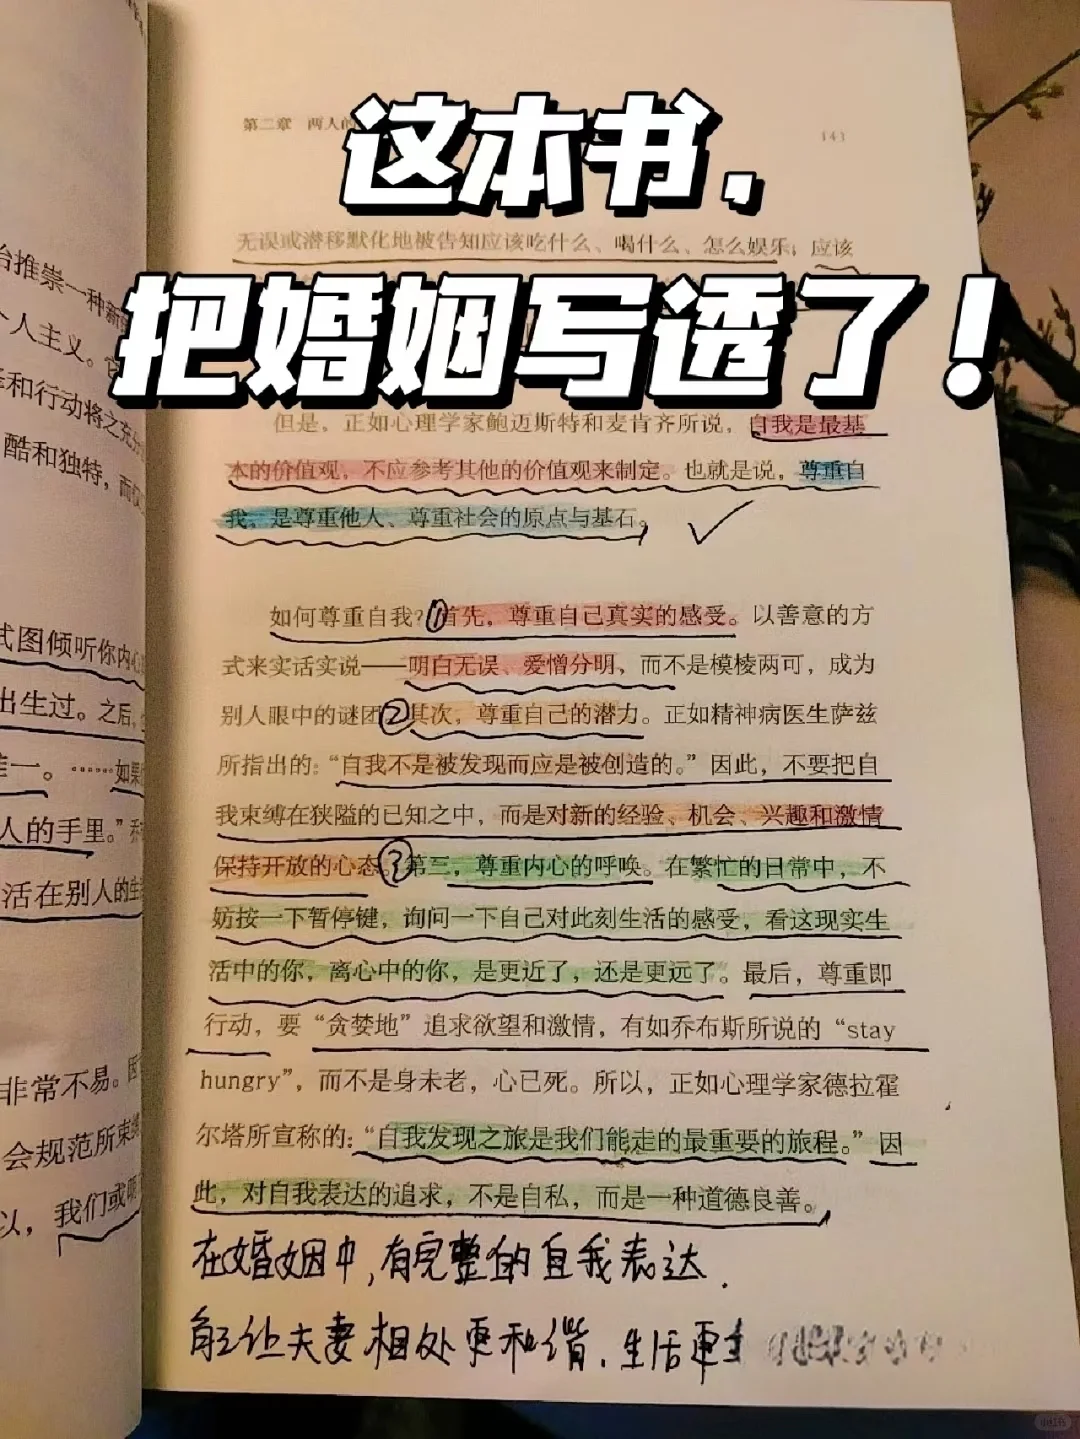 第二章 两人的
141
这本书，
无误或潜移默化地被告知应该吃什么、喝什么、怎么娱乐；应该
把婚姻写透了！
但是，正如心理学家鲍迈斯特和麦肯齐所说，自我是最基
本的价值观，不应参考其他的价值观来制定。也就是说，尊重自
我，是尊重他人、尊重社会的原点与基石。
如何尊重自我？①首先，尊重自己真实的感受。以善意的方
式来实话实说——明白无误、爱憎分明，而不是模棱两可，成为
别人眼中的谜团②其次，尊重自己的潜力。正如精神病医生萨兹
所指出的：“自我不是被发现而应是被创造的。”因此，不要把自
我束缚在狭隘的已知之中，而是对新的经验、机会、兴趣和激情
保持开放的心态。③第三，尊重内心的呼唤。在繁忙的日常中，不
妨按一下暂停键，询问一下自己对此刻生活的感受，看这现实生
活中的你，离心中的你，是更近了，还是更远了。最后，尊重即
行动，要“贪婪地”追求欲望和激情，有如乔布斯所说的“stay
hungry”，而不是身未老，心已死。所以，正如心理学家德拉霍
尔塔所宣称的：“自我发现之旅是我们能走的最重要的旅程。”因
此，对自我表达的追求，不是自私，而是一种道德良善。
在婚姻中，有完整的自我表达．
能让夫妻相处更和谐．生活更
台推崇一种新
个人主义。
和行动将之充分
酷和独特，而
式图倾听你内心
出生过。之后，
唯一。……如果
人的手里。”
活在别人的生
非常不易。因
会规范所束缚
以，我们或
小红书